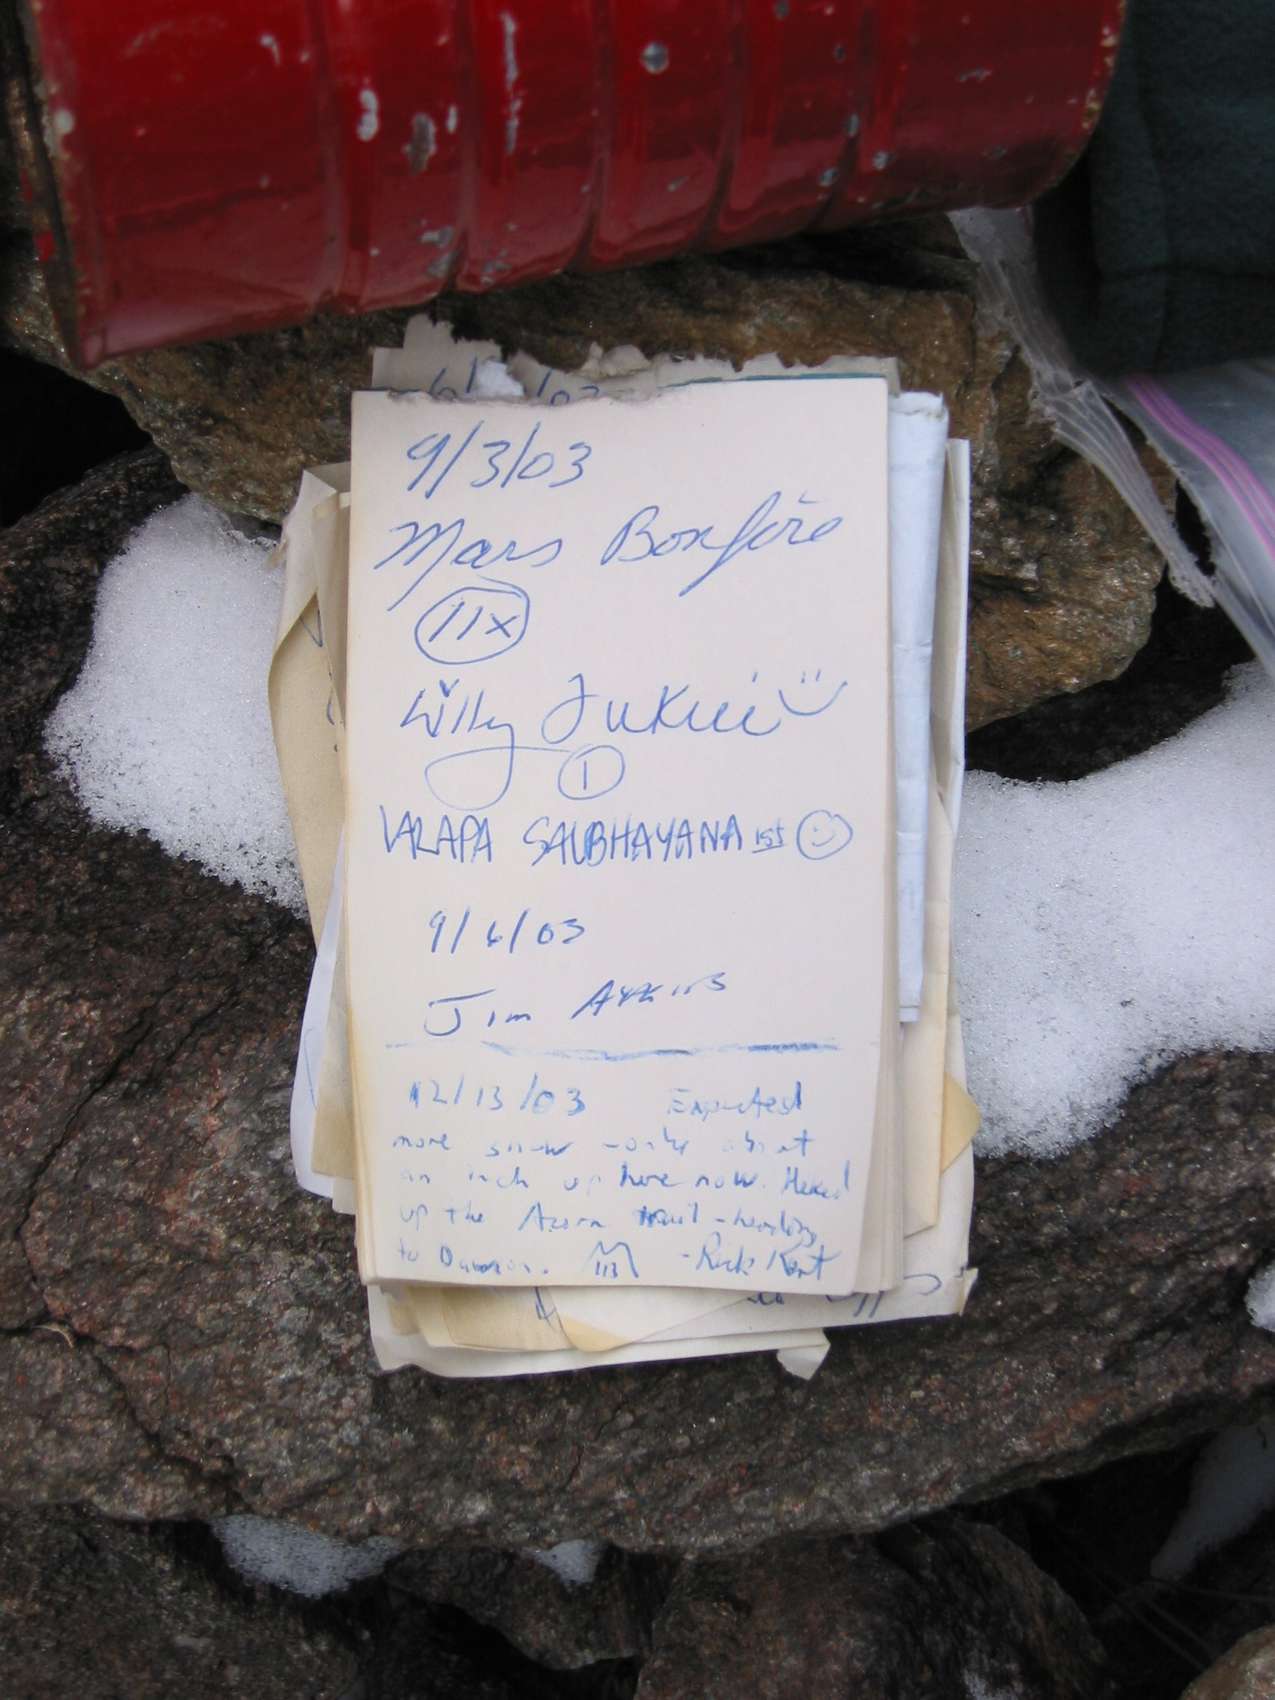 9/3/03
Mars Bonfire
11x
Willy
1
VARAPA SAUBHAYANA 1st
9/6/03
Jim
12/13/03 Expected
more snow - only about
an inch up here now. Hiked
up the Acorn trail - heading
to Dawson. 113 - Rick Kent